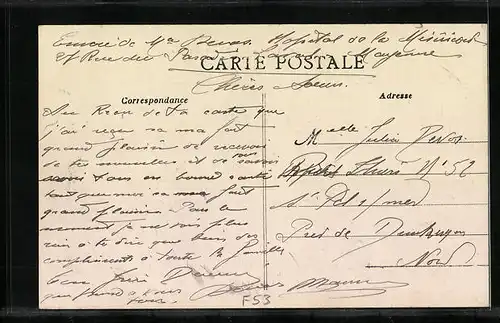 Envoi de Mr Devos. Hopital de la Miséricorde
27 Rue du Mayenne
CARTE POSTALE
Chères Soeurs.
Correspondance
Adresse
Au Reçu de ta carte que
j'ai reçu sa ma fait
grand plaisir de recevoir
de tes nouvelles et de savoir
vous tous en bonne santé
tant que moi sa ma fait
grand plaisir Pour le
moment je ne vois plus
rien à te dire que bien des
compliments à toute la famille
ton frère
que pense à vous
tous.
Melle Julia Devos
N° 52
St Pol s/mer
Près de Dunkerque
Nord
F53